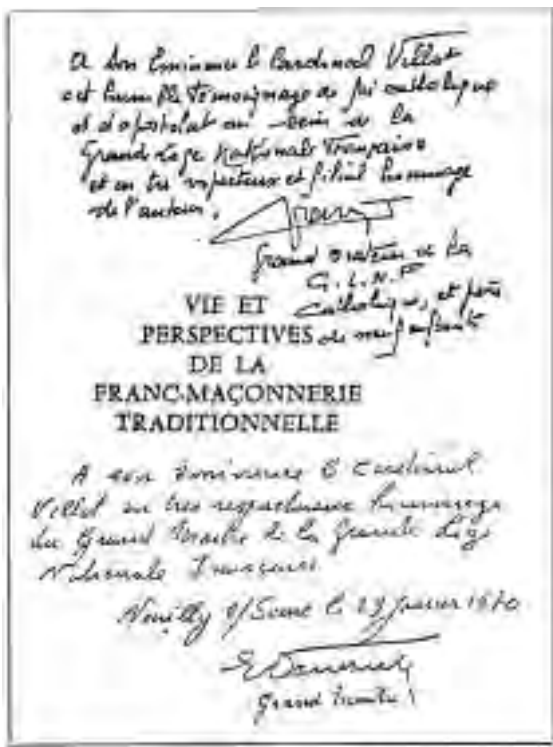 A Son Eminence le Cardinal Villot
cet humble témoignage de foi catholique
et d'apostolat au sein de la
Grande Loge Nationale Française
et en très respectueux et filial hommage
de l'auteur,
Grand Orateur de la
G.L.N.F
VIE ET
catholique, et père
PERSPECTIVES
de neuf enfants
DE LA
FRANC-MAÇONNERIE
TRADITIONNELLE
A son Eminence le Cardinal
Villot en très respectueux hommage
du Grand Maître de la Grande Loge
Nationale Française
Neuilly s/Seine le 29 janvier 1970
Grand Maître